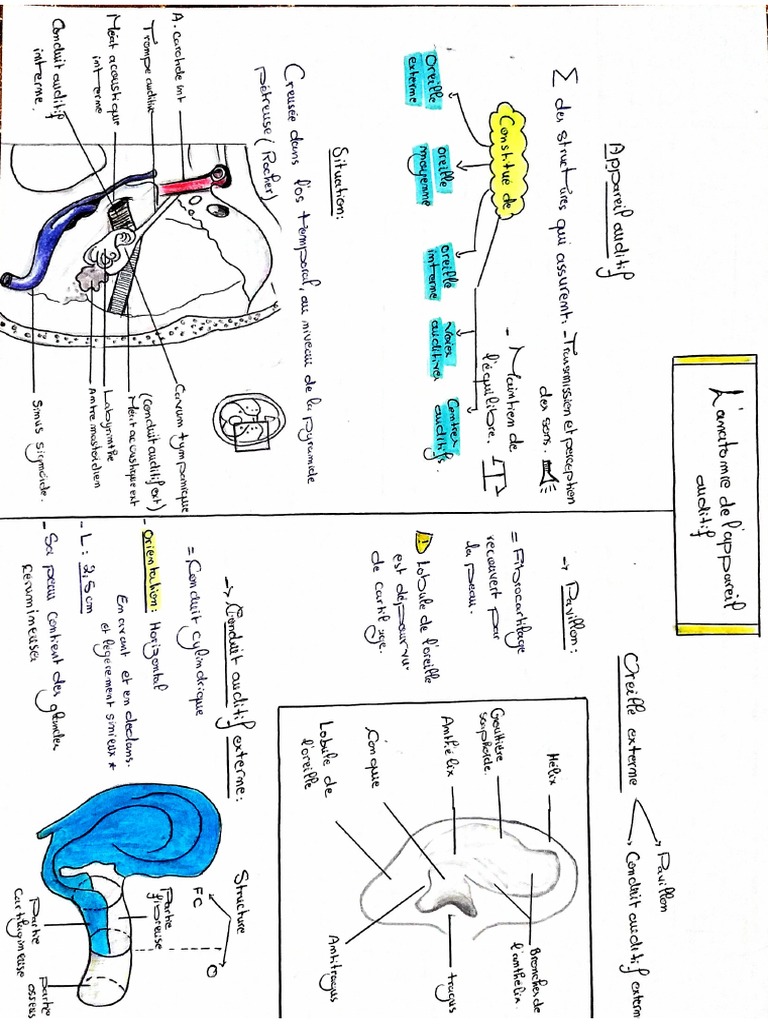 L'anatomie de l'appareil
auditif
Appareil auditif
Σ des structures qui assurent: - Transmission et perception
des sons.
- Maintien de
l'équilibre.
Constitué de
Oreille
externe
oreille
moyenne
oreille
interne
Voies
auditives
Centres
auditifs.
Situation:
Creusée dans l'os temporal, au niveau de la pyramide
pétreuse (Rocher)
A. carotide int
Trompe auditive
Méat acoustique
interne
Conduit auditif
interne.
Cavum tympanique
(Conduit auditif ext)
Méat acoustique ext
Labyrinthe
Antre mastoïdien
Sinus sigmoïde.
Oreille externe
Pavillon
Conduit auditif extern
→ Pavillon:
= Fibrocartilage
recouvert par
la peau.
! Lobule de l'oreille
est dépourvu
de cartilage.
Hélix
Gouttière
scaphoïde.
Anthélix
Conque
Lobule de
l'oreille
Branches de
l'anthélix.
tragus
Antitragus
→ Conduit auditif externe:
= Conduit cylindrique
- Orientation: Horizontal
En avant et en dedans.
et légèrement sinieux *
- L: 2,5cm
- Sa peau contient des glandes
cérumineuses
Structure
FC
O
Partie
fibreuse
Partie
Cartilagineuse
Partie
osseuse